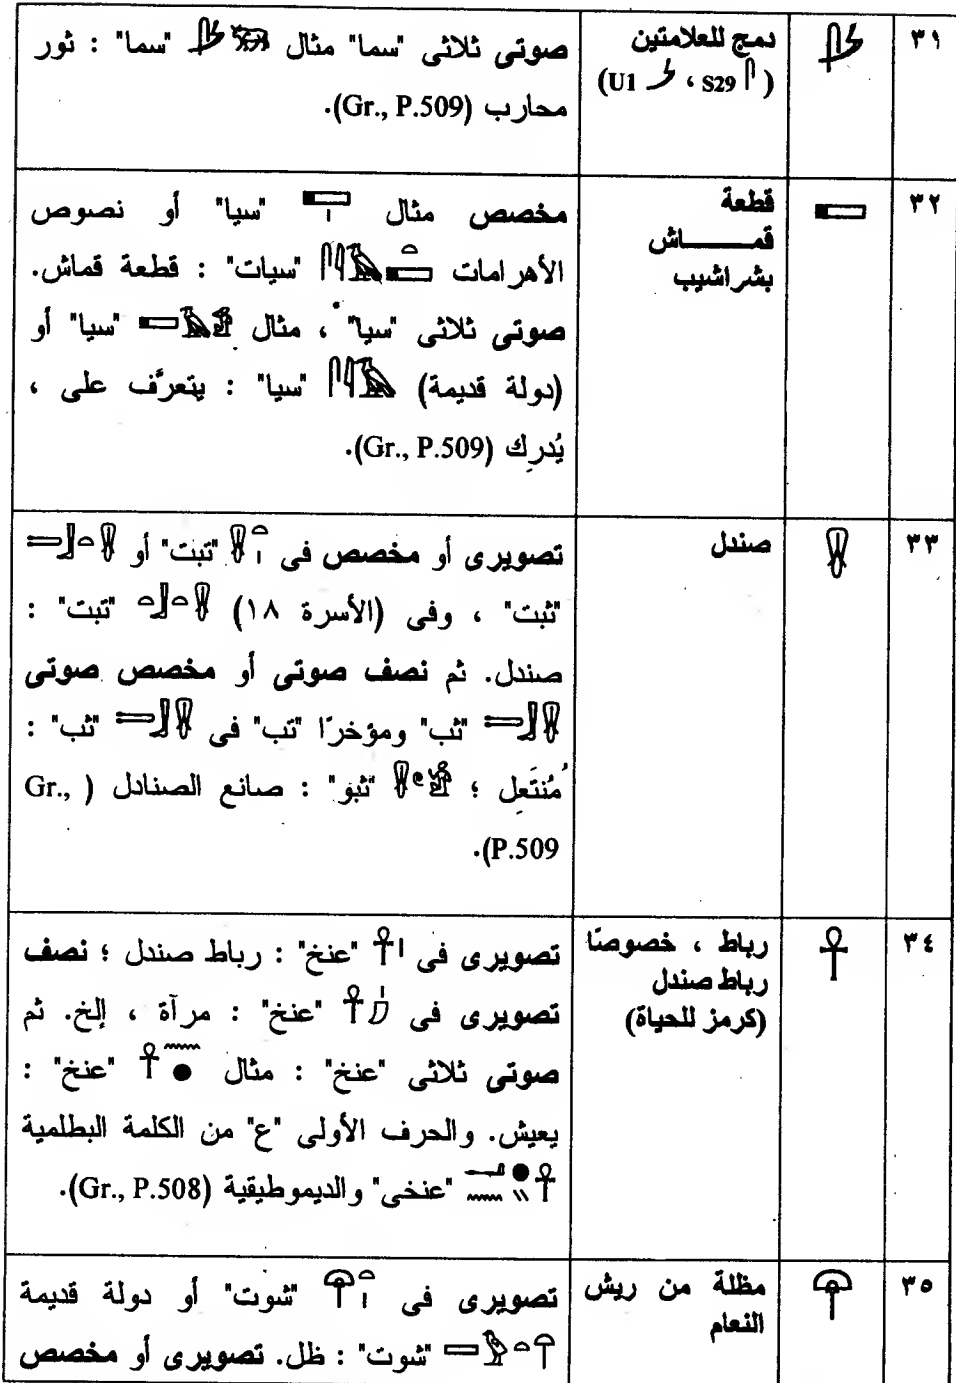 ٣١
دمج للعلامتين
(S29 ، U1)
صوتى ثلاثى "سما" مثال "سما" : ثور
محارب (Gr., P.509).
٣٢
قطعة
قمـــــــــاش
بشراشيب
مخصص مثال "سيا" أو نصوص
الأهرامات "سيات" : قطعة قماش.
صوتى ثلاثى "سيا" ، مثال "سيا" أو
(دولة قديمة) "سيا" : يتعرَّف على ،
يُدرِك (Gr., P.509).
٣٣
صندل
تصويرى أو مخصص فى "تبت" أو
"ثبت" ، وفى (الأسرة ١٨) "تبت" :
صندل. ثم نصف صوتى أو مخصص صوتى
"ثب" ومؤخرًا "تب" فى "ثب" :
مُنتَعِل ؛ "ثبو" : صانع الصنادل (Gr.,
P.509).
٣٤
رباط ، خصوصًا
رباط صندل
(كرمز للحياة)
تصويرى فى "عنخ" : رباط صندل ؛ نصف
تصويرى فى "عنخ" : مرآة ، إلخ. ثم
صوتى ثلاثى "عنخ" : مثال "عنخ" :
يعيش. والحرف الأولى "ع" من الكلمة البطلمية
"عنخى" والديموطيقية (Gr., P.508).
٣٥
مظلة من ريش
النعام
تصويرى فى "شوت" أو دولة قديمة
"شوت" : ظل. تصويرى أو مخصص